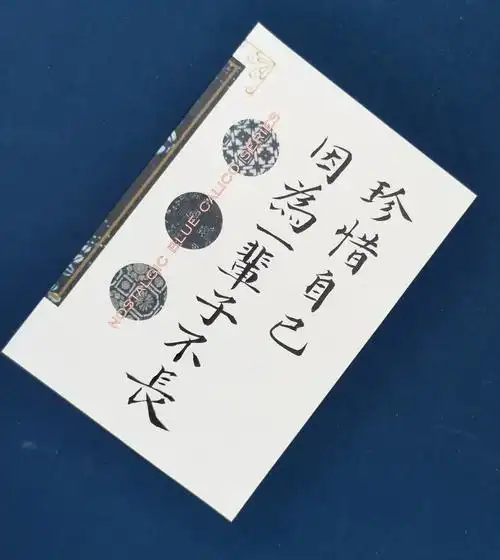 珍惜自己
因為一輩子不長
NOSTALGIC BLUE CALICO SERIES